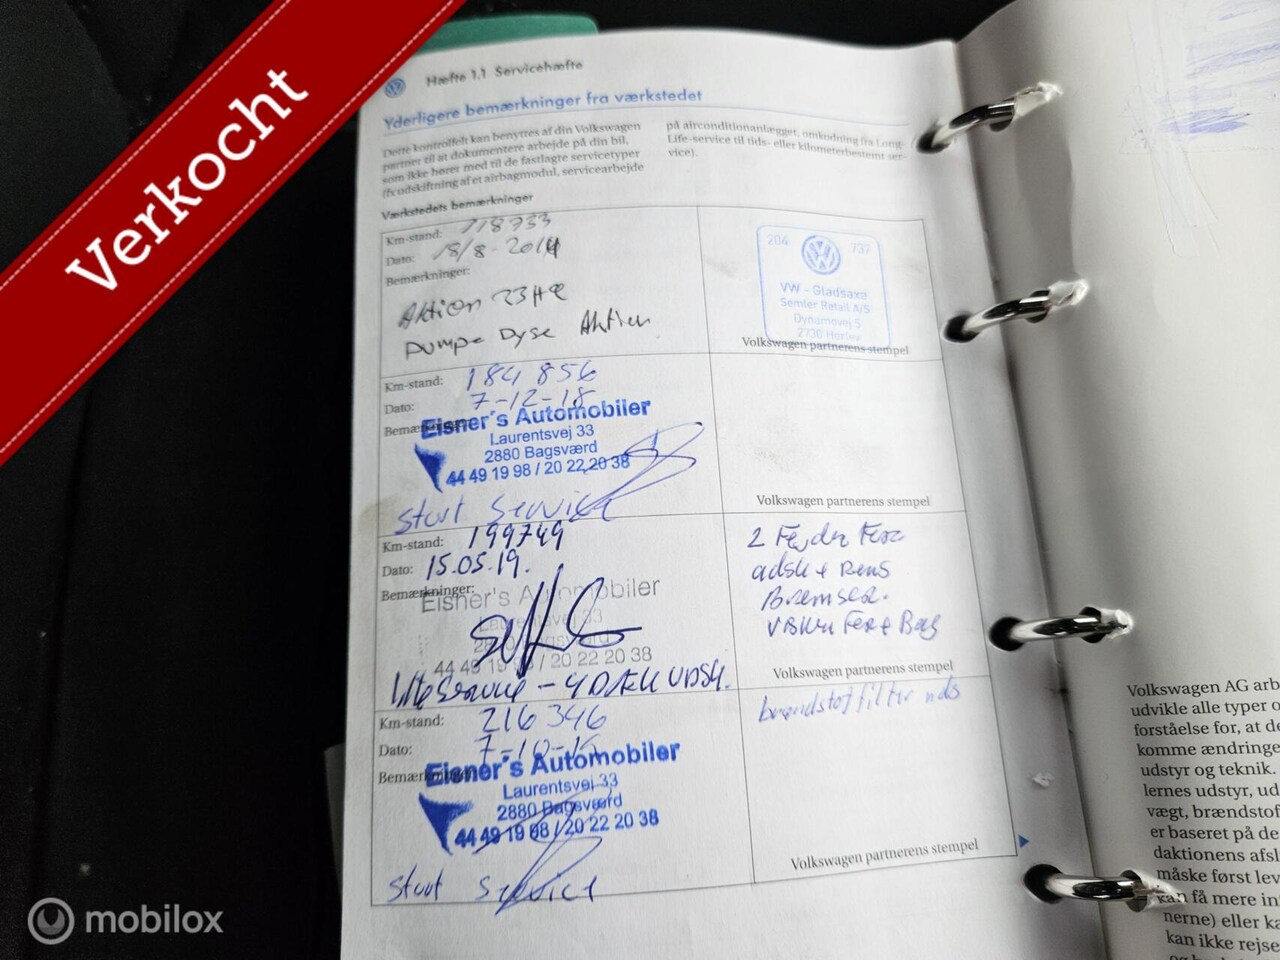 Verkocht
Hæfte 1.1 Servicehæfte
Yderligere bemærkninger fra værkstedet
Dette kontrolfelt kan benyttes af din Volkswagen
partner til at dokumentere arbejde på din bil,
som ikke hører med til de fastlagte servicetyper
(fx udskiftning af et airbagmodul, servicearbejde
på airconditionanlægget, omkodning fra Long-
Life-service til tids- eller kilometerbestemt ser-
vice).
Værkstedets bemærkninger
Km-stand: 118733
Dato: 18/8-2014
Bemærkninger:
Aktion 23H2
Pumpe Dyse Aktion
204 737
VW - Gladsaxe
Semler Retail A/S
Dynamovej 5
2730 Herlev
Volkswagen partnerens stempel
Km-stand: 184 856
Dato: 7-12-18
Eisner's Automobiler
Laurentsvej 33
2880 Bagsværd
44 49 19 98 / 20 22 20 38
stort Service
Volkswagen partnerens stempel
Km-stand: 199749
Dato: 15.05.19.
Bemærkninger:
Eisner's Automobiler
44 49 19 98 / 20 22 20 38
Lille Service - 4 Dæk udsk.
2 Fejder For
adsk + Rens
Bremser.
Visker For + Bag
Volkswagen partnerens stempel
Km-stand: 216 346
Dato:
Eisner's Automobiler
Laurentsvej 33
2880 Bagsværd
44 49 19 98 / 20 22 20 38
stort Service
brændstoffilter uds
Volkswagen partnerens stempel
Volkswagen AG arb
udvikle alle typer o
forståelse for, at de
komme ændringe
udstyr og teknik.
lernes udstyr, ud
vægt, brændstof
er baseret på de
daktionens afsl
måske først lev
kan få mere in
nerne) eller ka
kan ikke rejse
mobilox